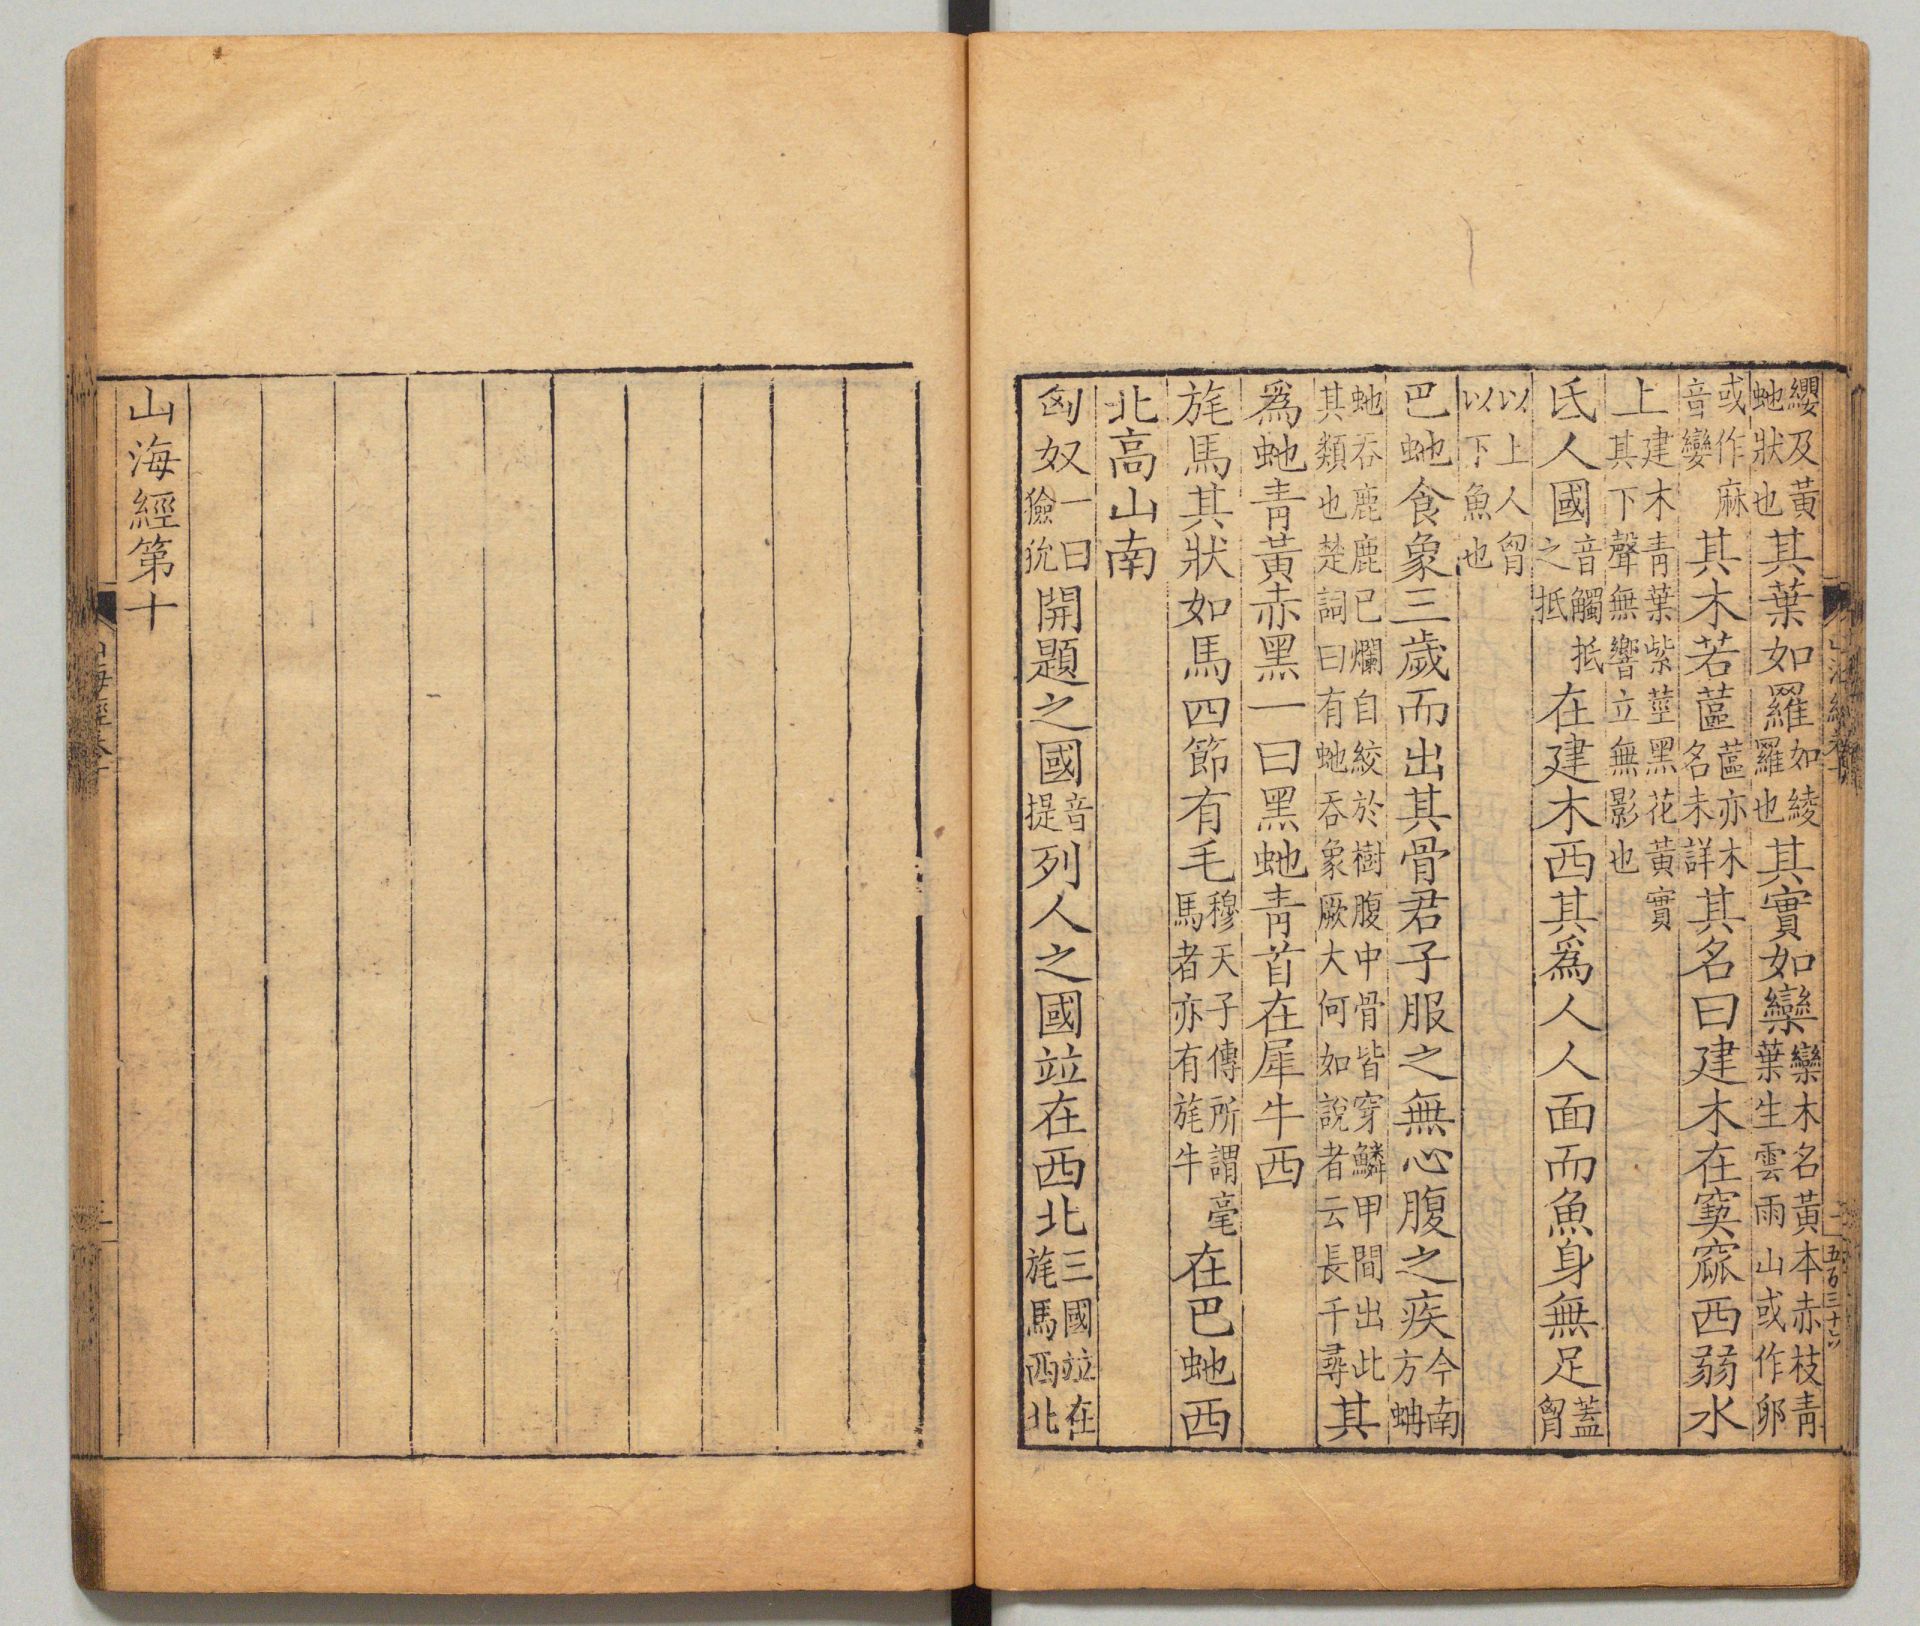 纓及黃虵狀也其葉如羅如綾羅也其實如欒欒木名黃本赤枝青葉生雲雨山或作卵
或作麻音孿其木若蓲蓲亦木名未詳其名曰建木在窫窳西弱水
上建木青葉紫莖黑花黃實其下聲無響立無影也
氐人國音觸抵之抵在建木西其爲人人面而魚身無足蓋胷
以上人胷以下魚也
巴虵食象三歲而出其骨君子服之無心腹之疾今南方蚺
虵吞鹿鹿已爛自絞於樹腹中骨皆穿鱗甲間出此其類也楚詞曰有虵吞象厥大何如說者云長千尋其
爲虵青黃赤黑一曰黑虵青首在犀牛西
旄馬其狀如馬四節有毛穆天子傳所謂毫馬者亦有旄牛在巴虵西
北高山南
匈奴一曰獫狁開題之國音提列人之國竝在西北三國竝在旄馬西北
山海經第十